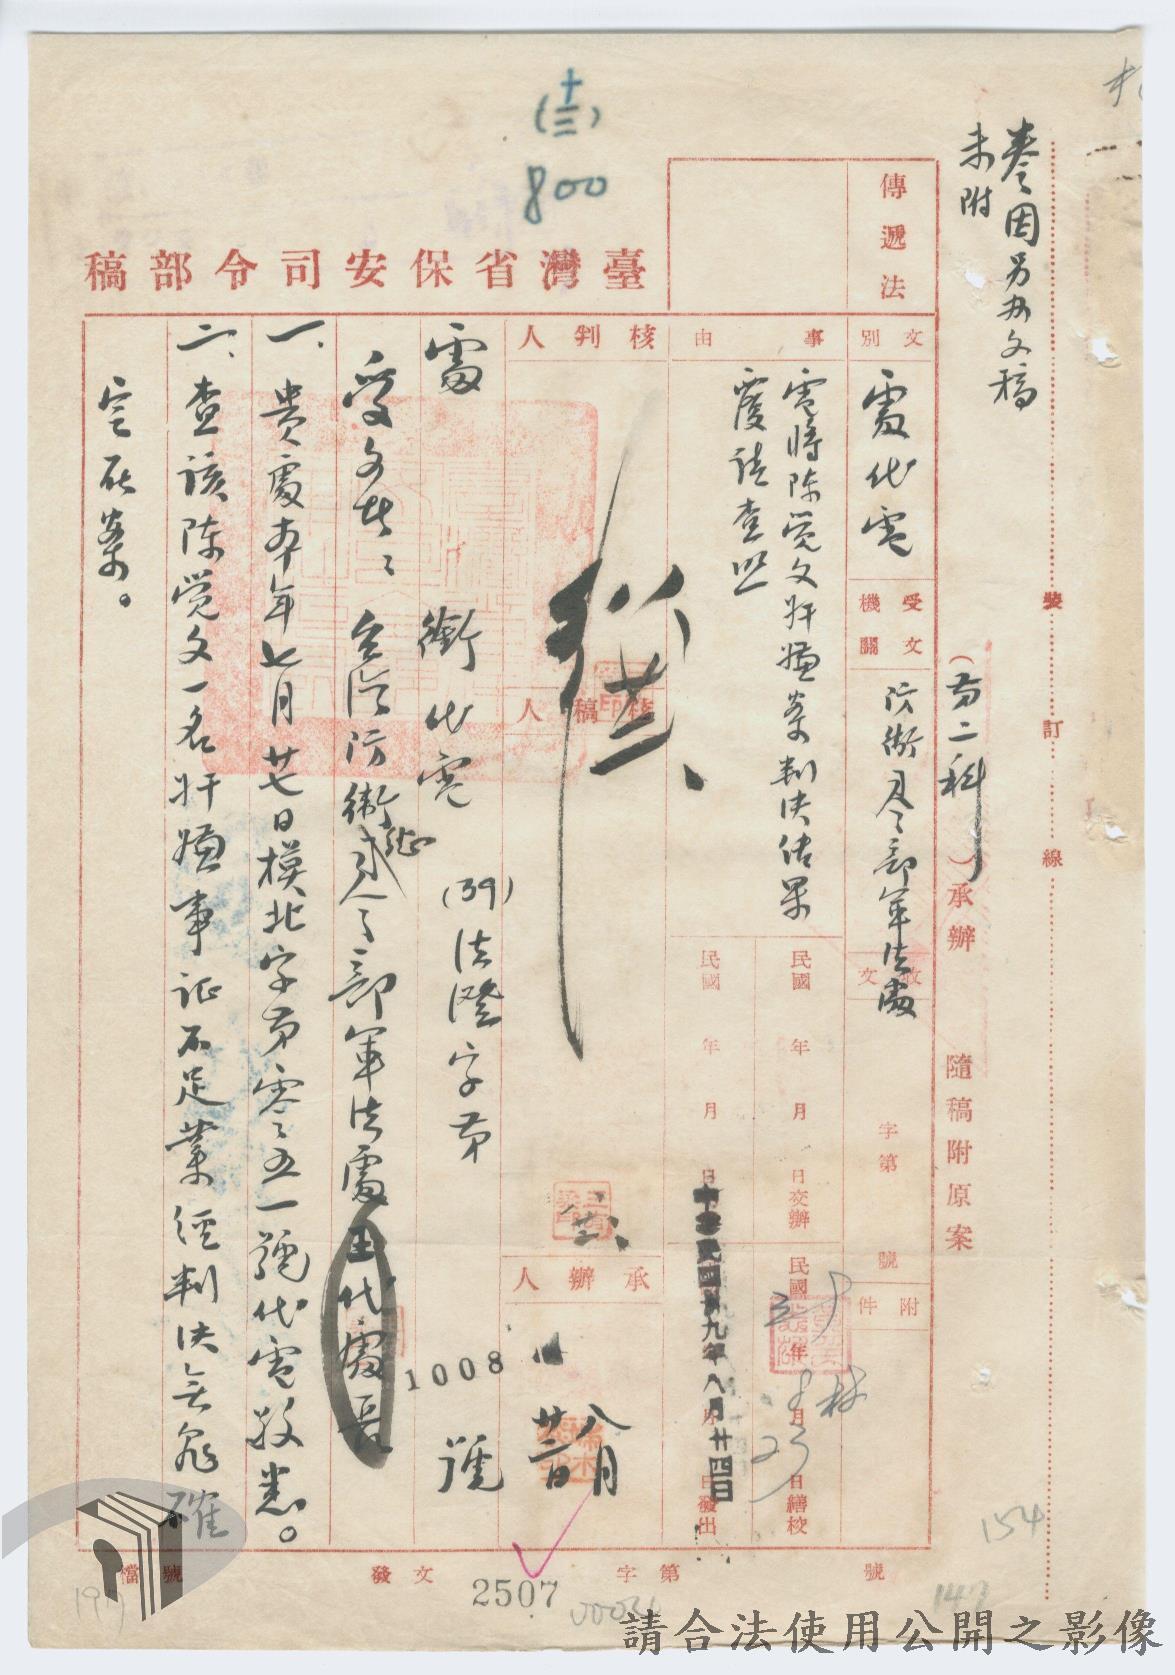 (十三)
800
臺灣省保安司令部稿
卷因另办文稿
未附
裝訂線
(第二科)承辦 隨稿附原案
傳遞法
文別 代電
受文機關 防衛司令部軍法處
收文 字第 號
附件
事由
電將陈觉文奸嫌案判决结果
覆請查照
民國 年 月 日交辦
民國 年 月 日繕校
民國 年 月 日發出
中華民國卅九年八月廿四日
核判人
核稿人
承辦人
八月
廿二日
代電 (39)法澄字第 1008 號
受文者：台湾防衛司令部軍法處 代處長
一、貴處本年七月廿七日模北字第零零五一號代電敬悉。
二、查該陈觉文一名奸嫌事证不足業經判决無罪確
定在案。
檔號
發文
字第 號
2507
154
147
197
請合法使用公開之影像